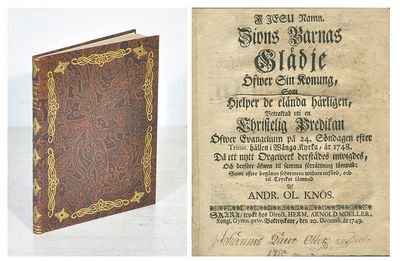 I JESU Namn.
Zions Barnas
Glädje
Öfwer Sin Konung,
Som
Hjelper de elända härligen,
Betraktad uti en
Christelig Predikan
Öfwer Evangelium på 24. Söndagen efter
Trinit. hållen i Wånga Kyrka, år 1748.
Då ett nytt Orgwerk derstädes inwigdes,
Och derföre äfwen til samma förrättning lämpad;
Samt efter begäran sedermera widare utförd, och
til Trycket lämnad
Af
ANDR. OL. KNÖS.
SKARA, tryckt hos Direct. HERM. ARNOLD MOELLER,
Kongl. Gymn. priv. Boktryckare, den 20. Decemb. år 1749.
Johannis